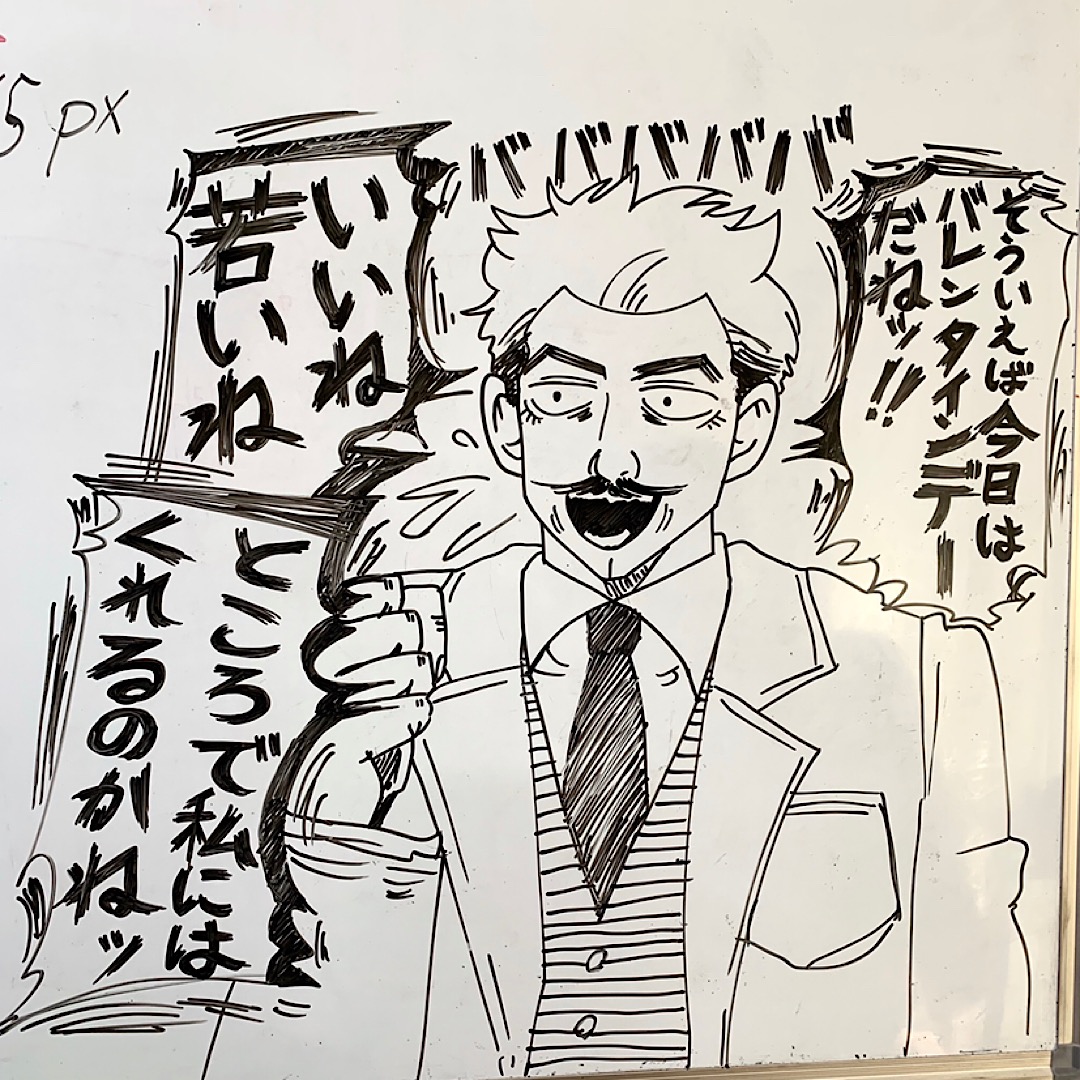 5px
ババババババ
そういえば今日は
バレンタインデー
だねッ!!
いいね
苦いね
ところで私には
くれるのかねッ